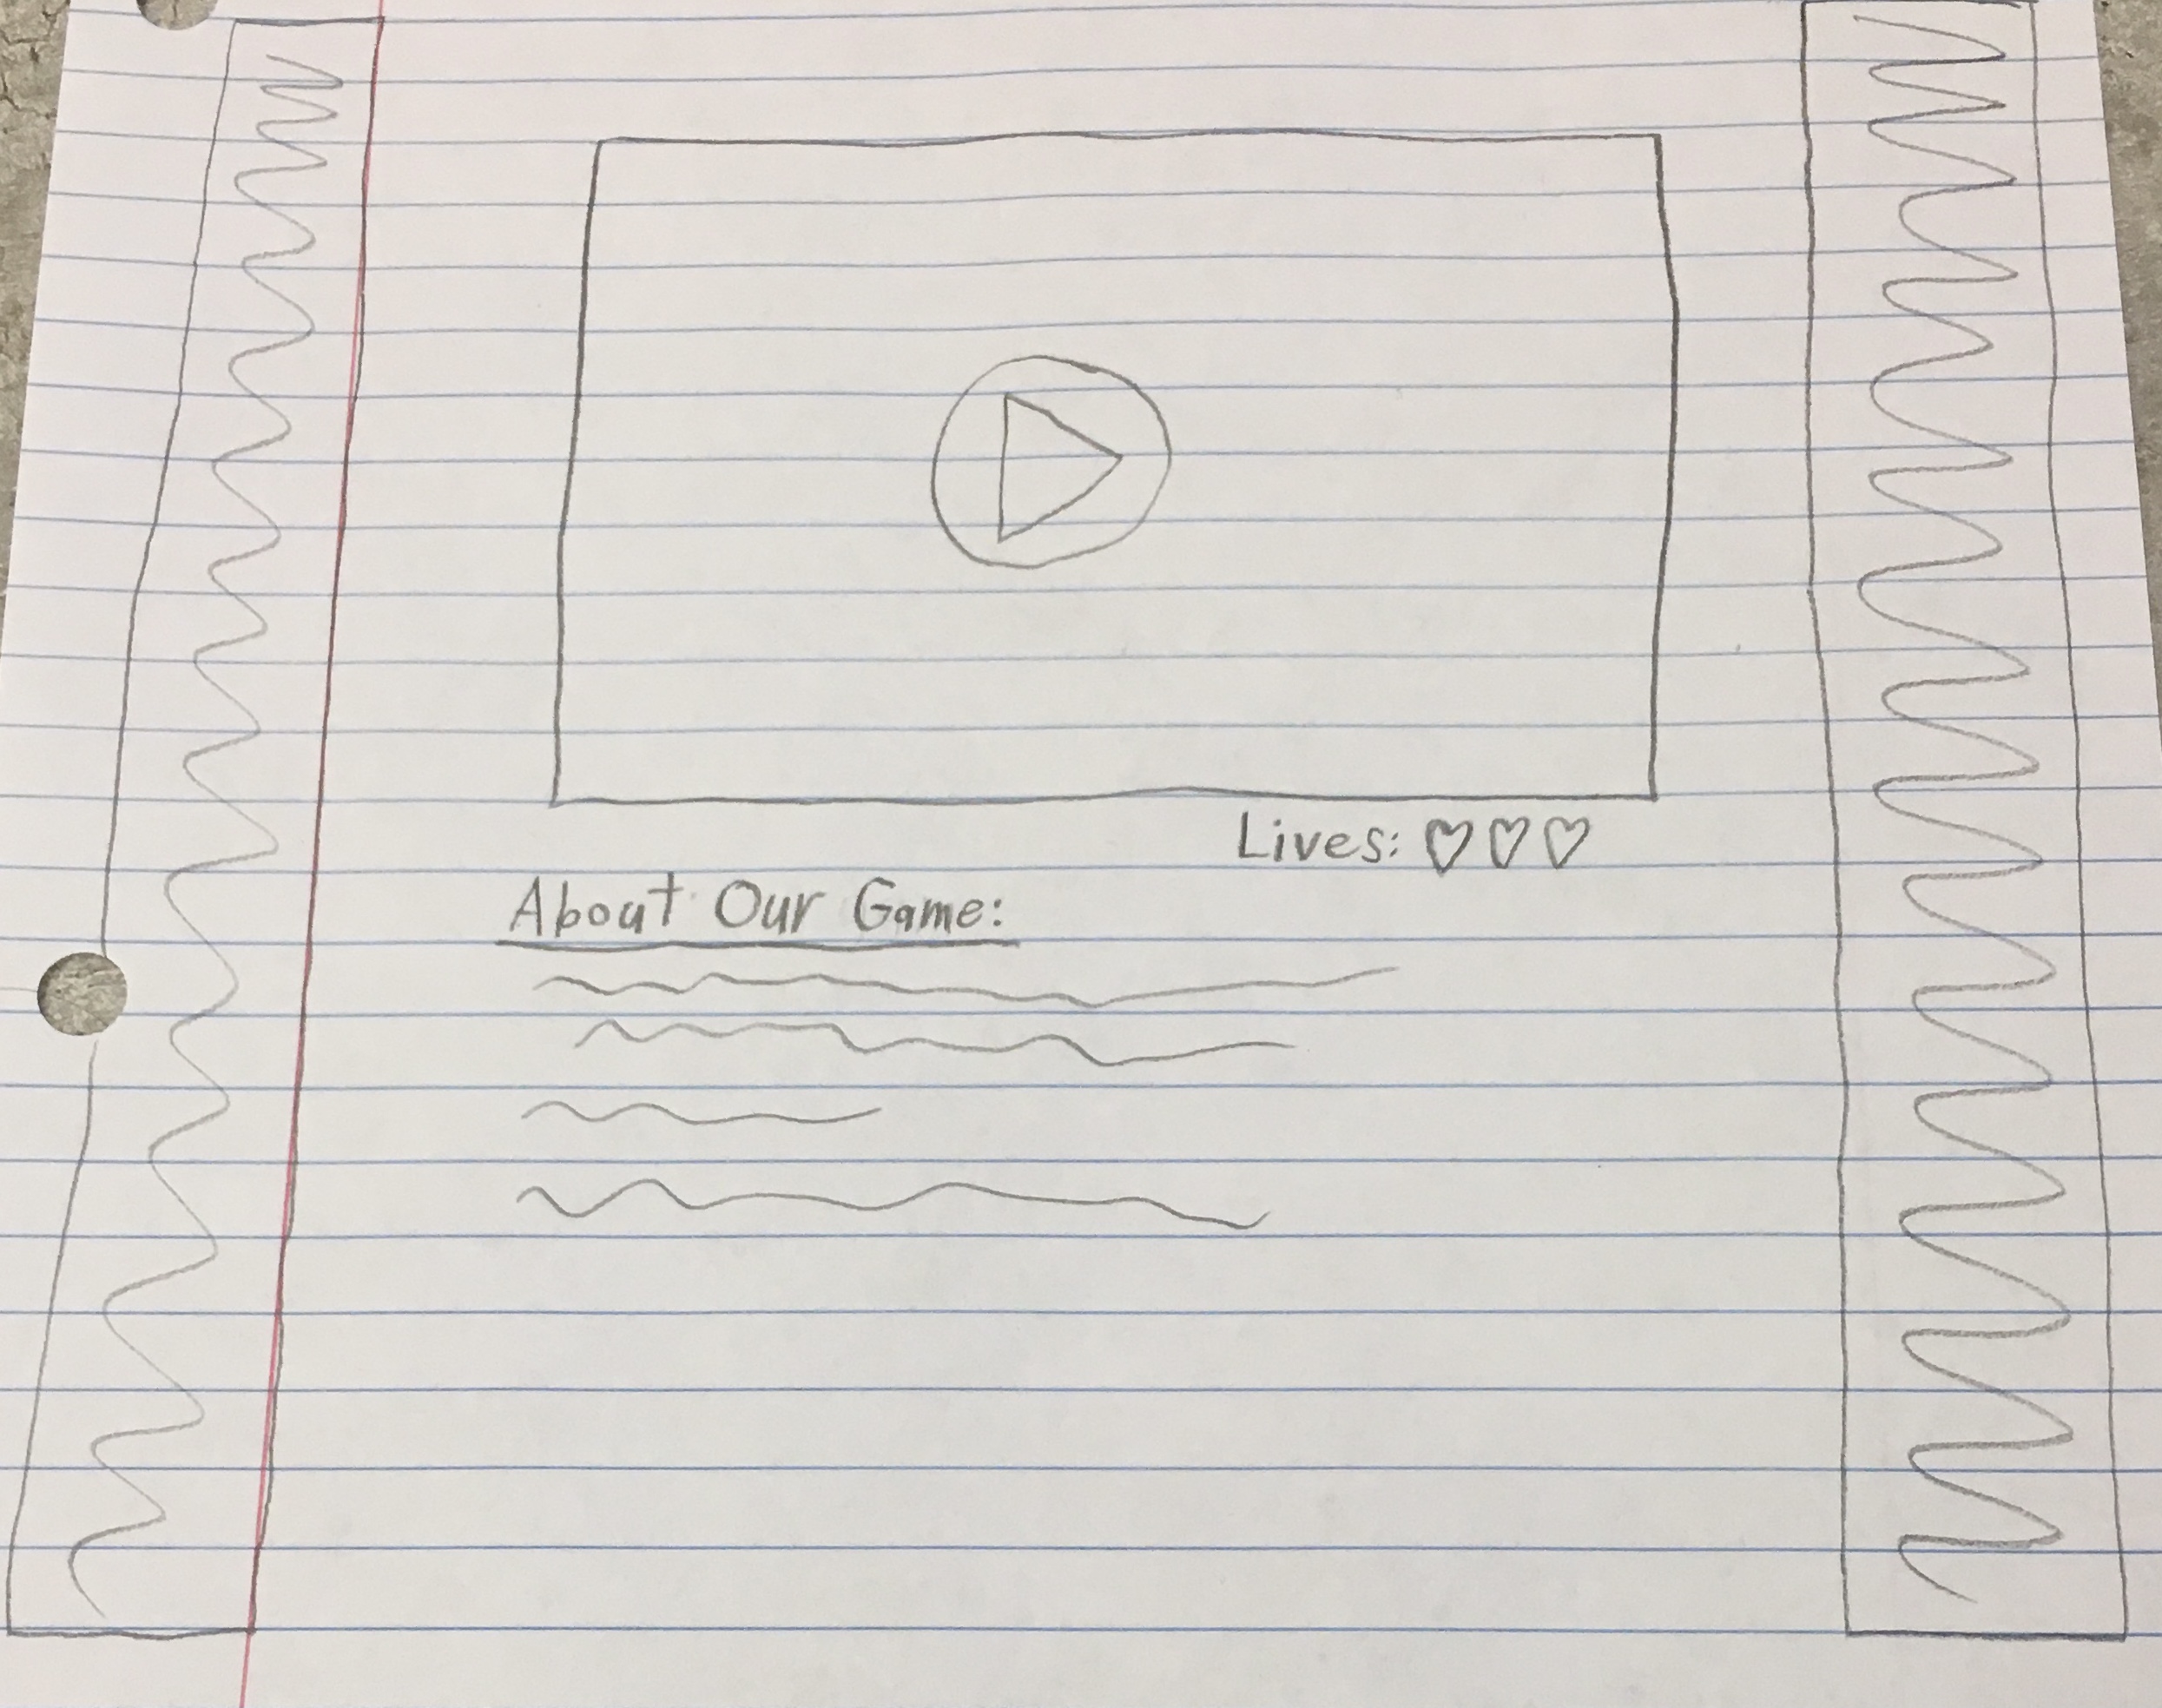 Lives: ♡♡♡
About Our Game: